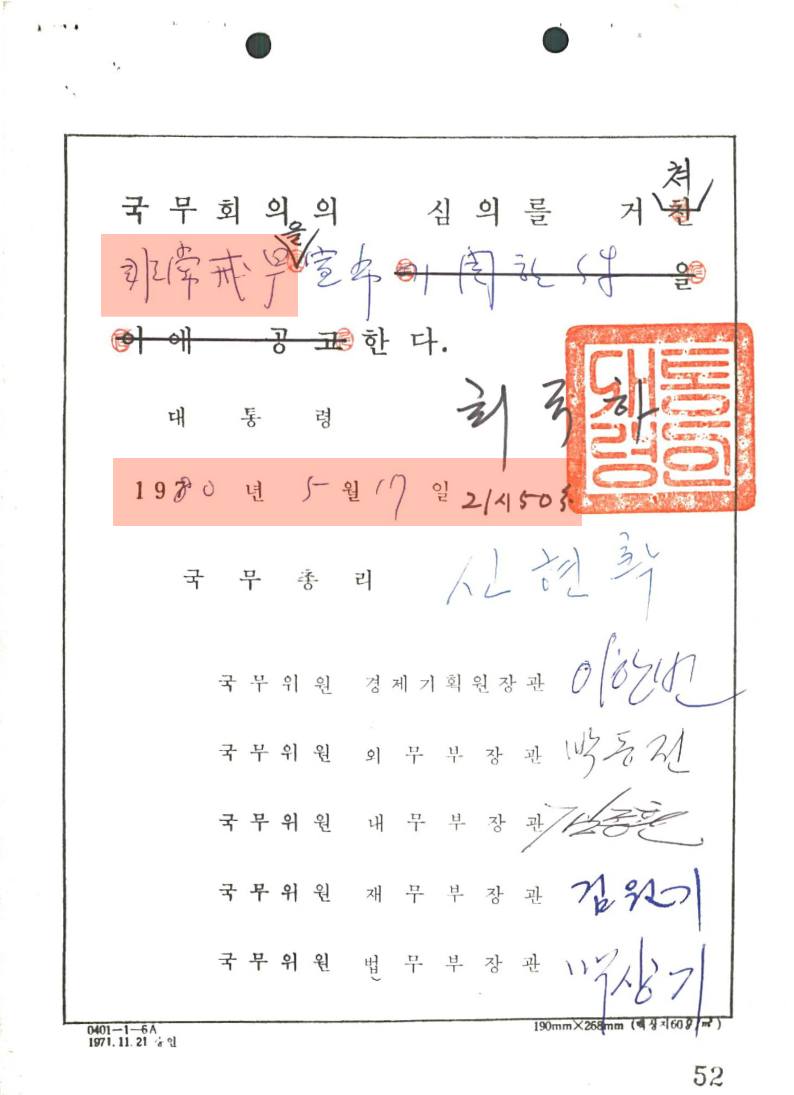 국무회의의 심의를 거친 쳐
을
非常戒厳 宣布 에 관한 件 을
이에 공고한다.
대통령 최규하
대통령의인
1980년 5월 17일 21시50분
국무총리 신현확
국무위원 경제기획원장관 이한빈
국무위원 외무부장관 박동진
국무위원 내무부장관 김종환
국무위원 재무부장관 김원기
국무위원 법무부장관 백상기
0401-1-6A 190mm×268mm (백상지60g/㎡)
1971.11.21 승인
52